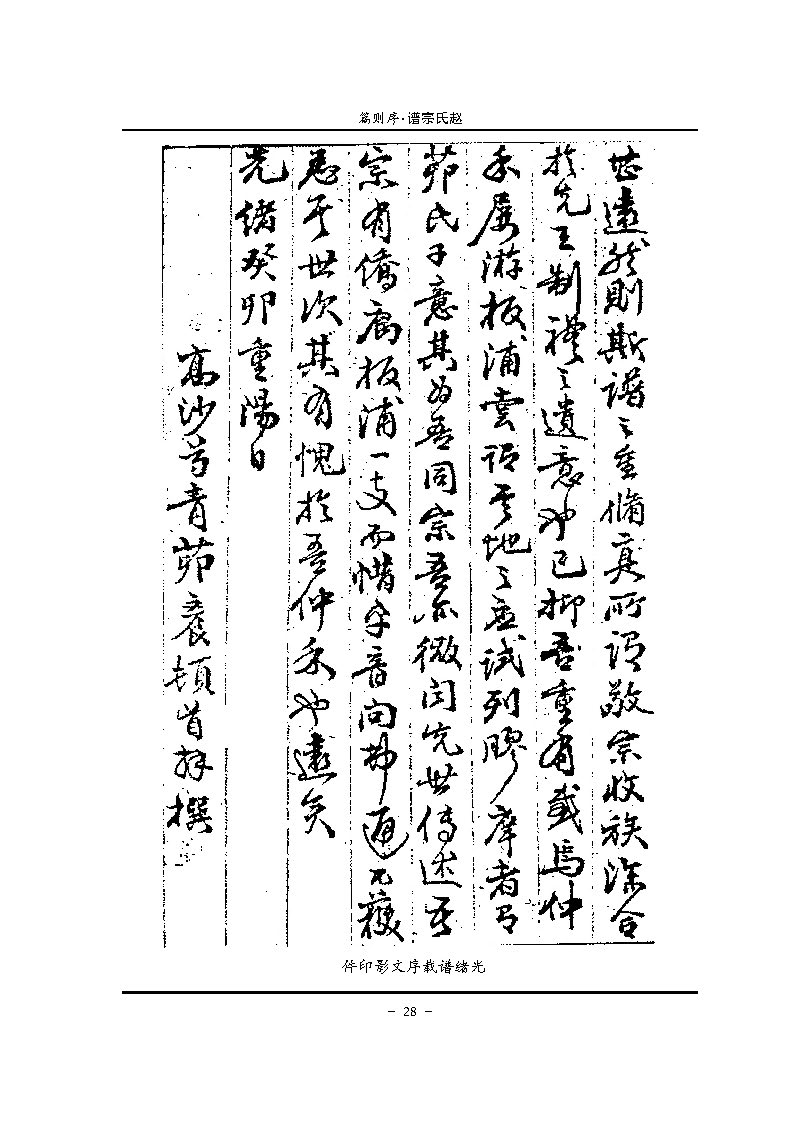 篇则序·谱宗氏赵
遠然則斯譜之重脩真所謂敬宗收族深合
於先王制禮之遺意也已抑吾重有感焉仲
禾屢游板浦雲語其地之應試列膠庠者有
茆氏子意其為吾同宗吾亦微聞先世傳述吾
宗有僑居板浦一支而惜乎音問弗通不獲
其世次其有愧於吾仲禾也遠矣
光緒癸卯重陽日
高沙芍青茆 頓首拜撰
件印影文序载谱绪光
- 28 -